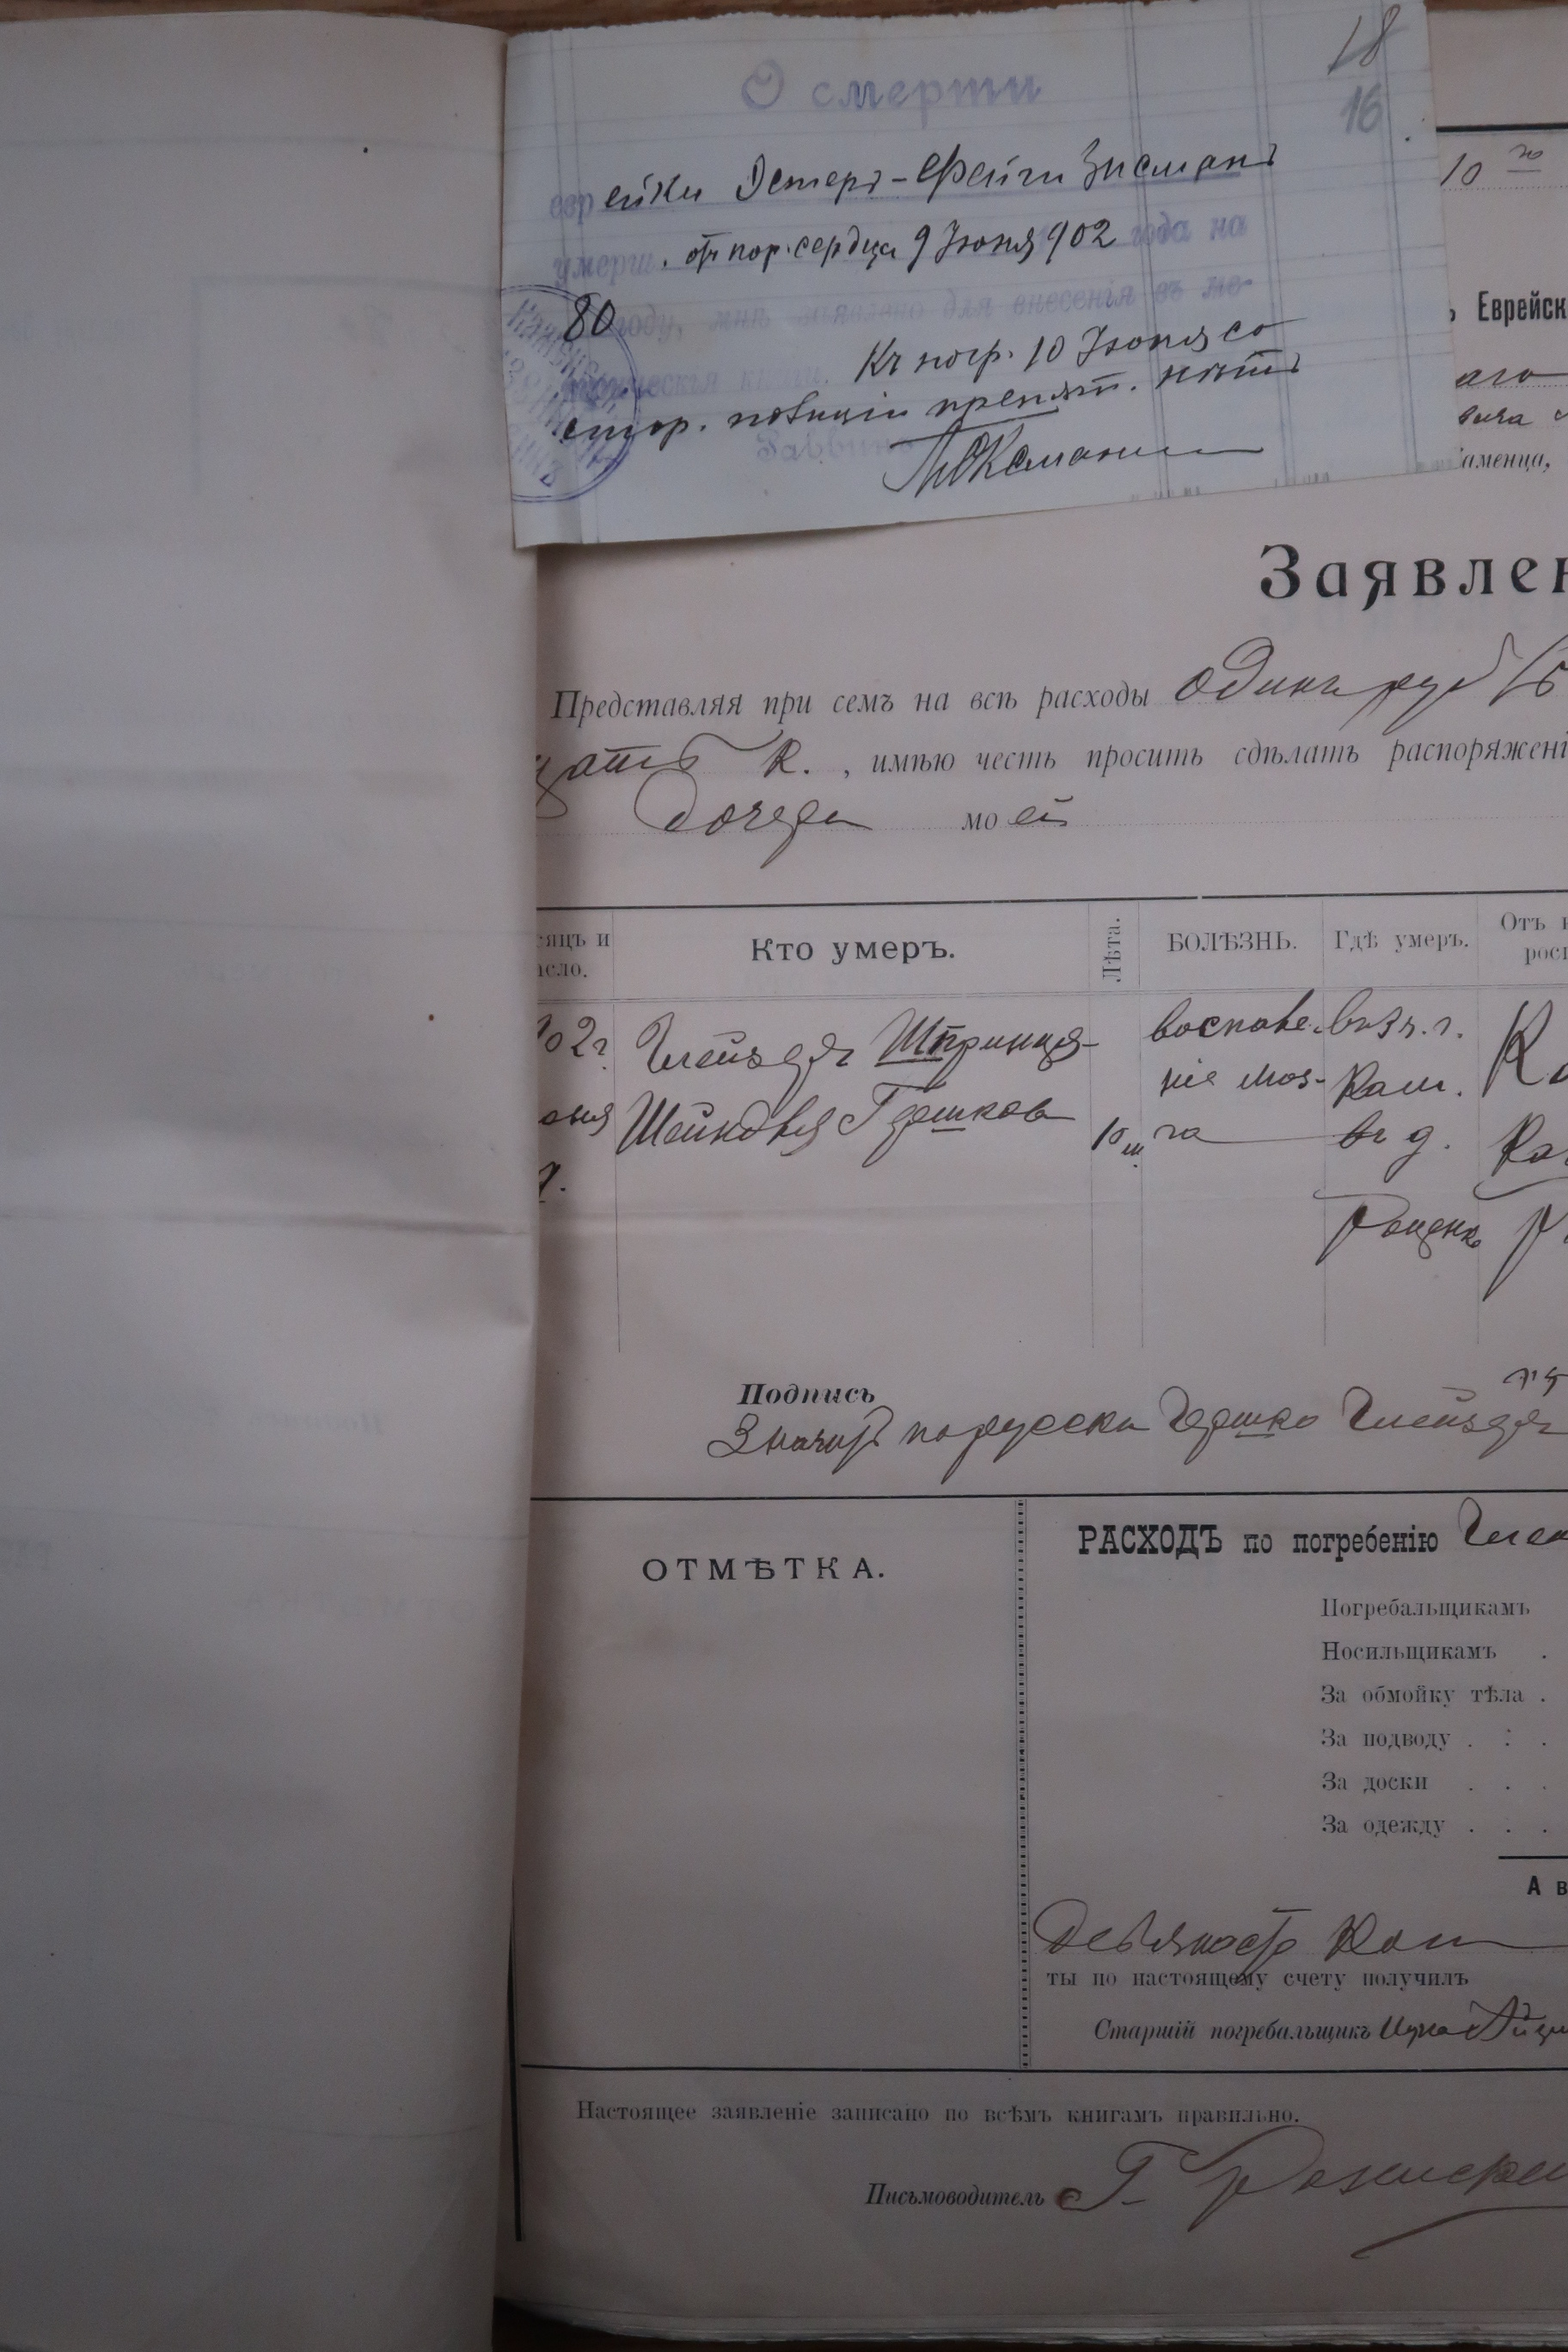 18
16
О смерти
еврейки Эстеръ-Фейги Зисманъ
умерш. отъ пор. сердца 9 Іюня 902 года на
80 году, мнѣ заявлено для внесенія въ ме-
трическія книги. Къ погр. 10 Іюня со
стор. полиціи препят. нѣтъ
Раввинъ
10
Еврейск
аго
вича
аменца,
Заявлен
Представляя при семъ на всѣ расходы одинъ руб
цать к. , имѣю честь просить сдѣлать распоряжені
дочери моей
сяцъ и
исло.
Кто умеръ.
Лѣта.
БОЛѢЗНЬ.
Гдѣ умеръ.
Отъ к
росп
902г
Глейзеръ Шпринця-
воспале-
въ Зч. г.
юня
Шейндля Гершков
10 м.
ніе моз-
га
Кам.
въ д.
Подпись
Значитъ по русски Гершко Глейзеръ
ОТМѢТКА.
РАСХОДЪ по погребенію Глей
Погребальщикамъ
Носильщикамъ .
За обмойку тѣла .
За подводу . . .
За доски . . .
За одежду . . .
А в
Девяносто коп
ты по настоящему счету получилъ
Старшій погребальщикъ
Настоящее заявленіе записано по всѣмъ книгамъ правильно.
Письмоводитель